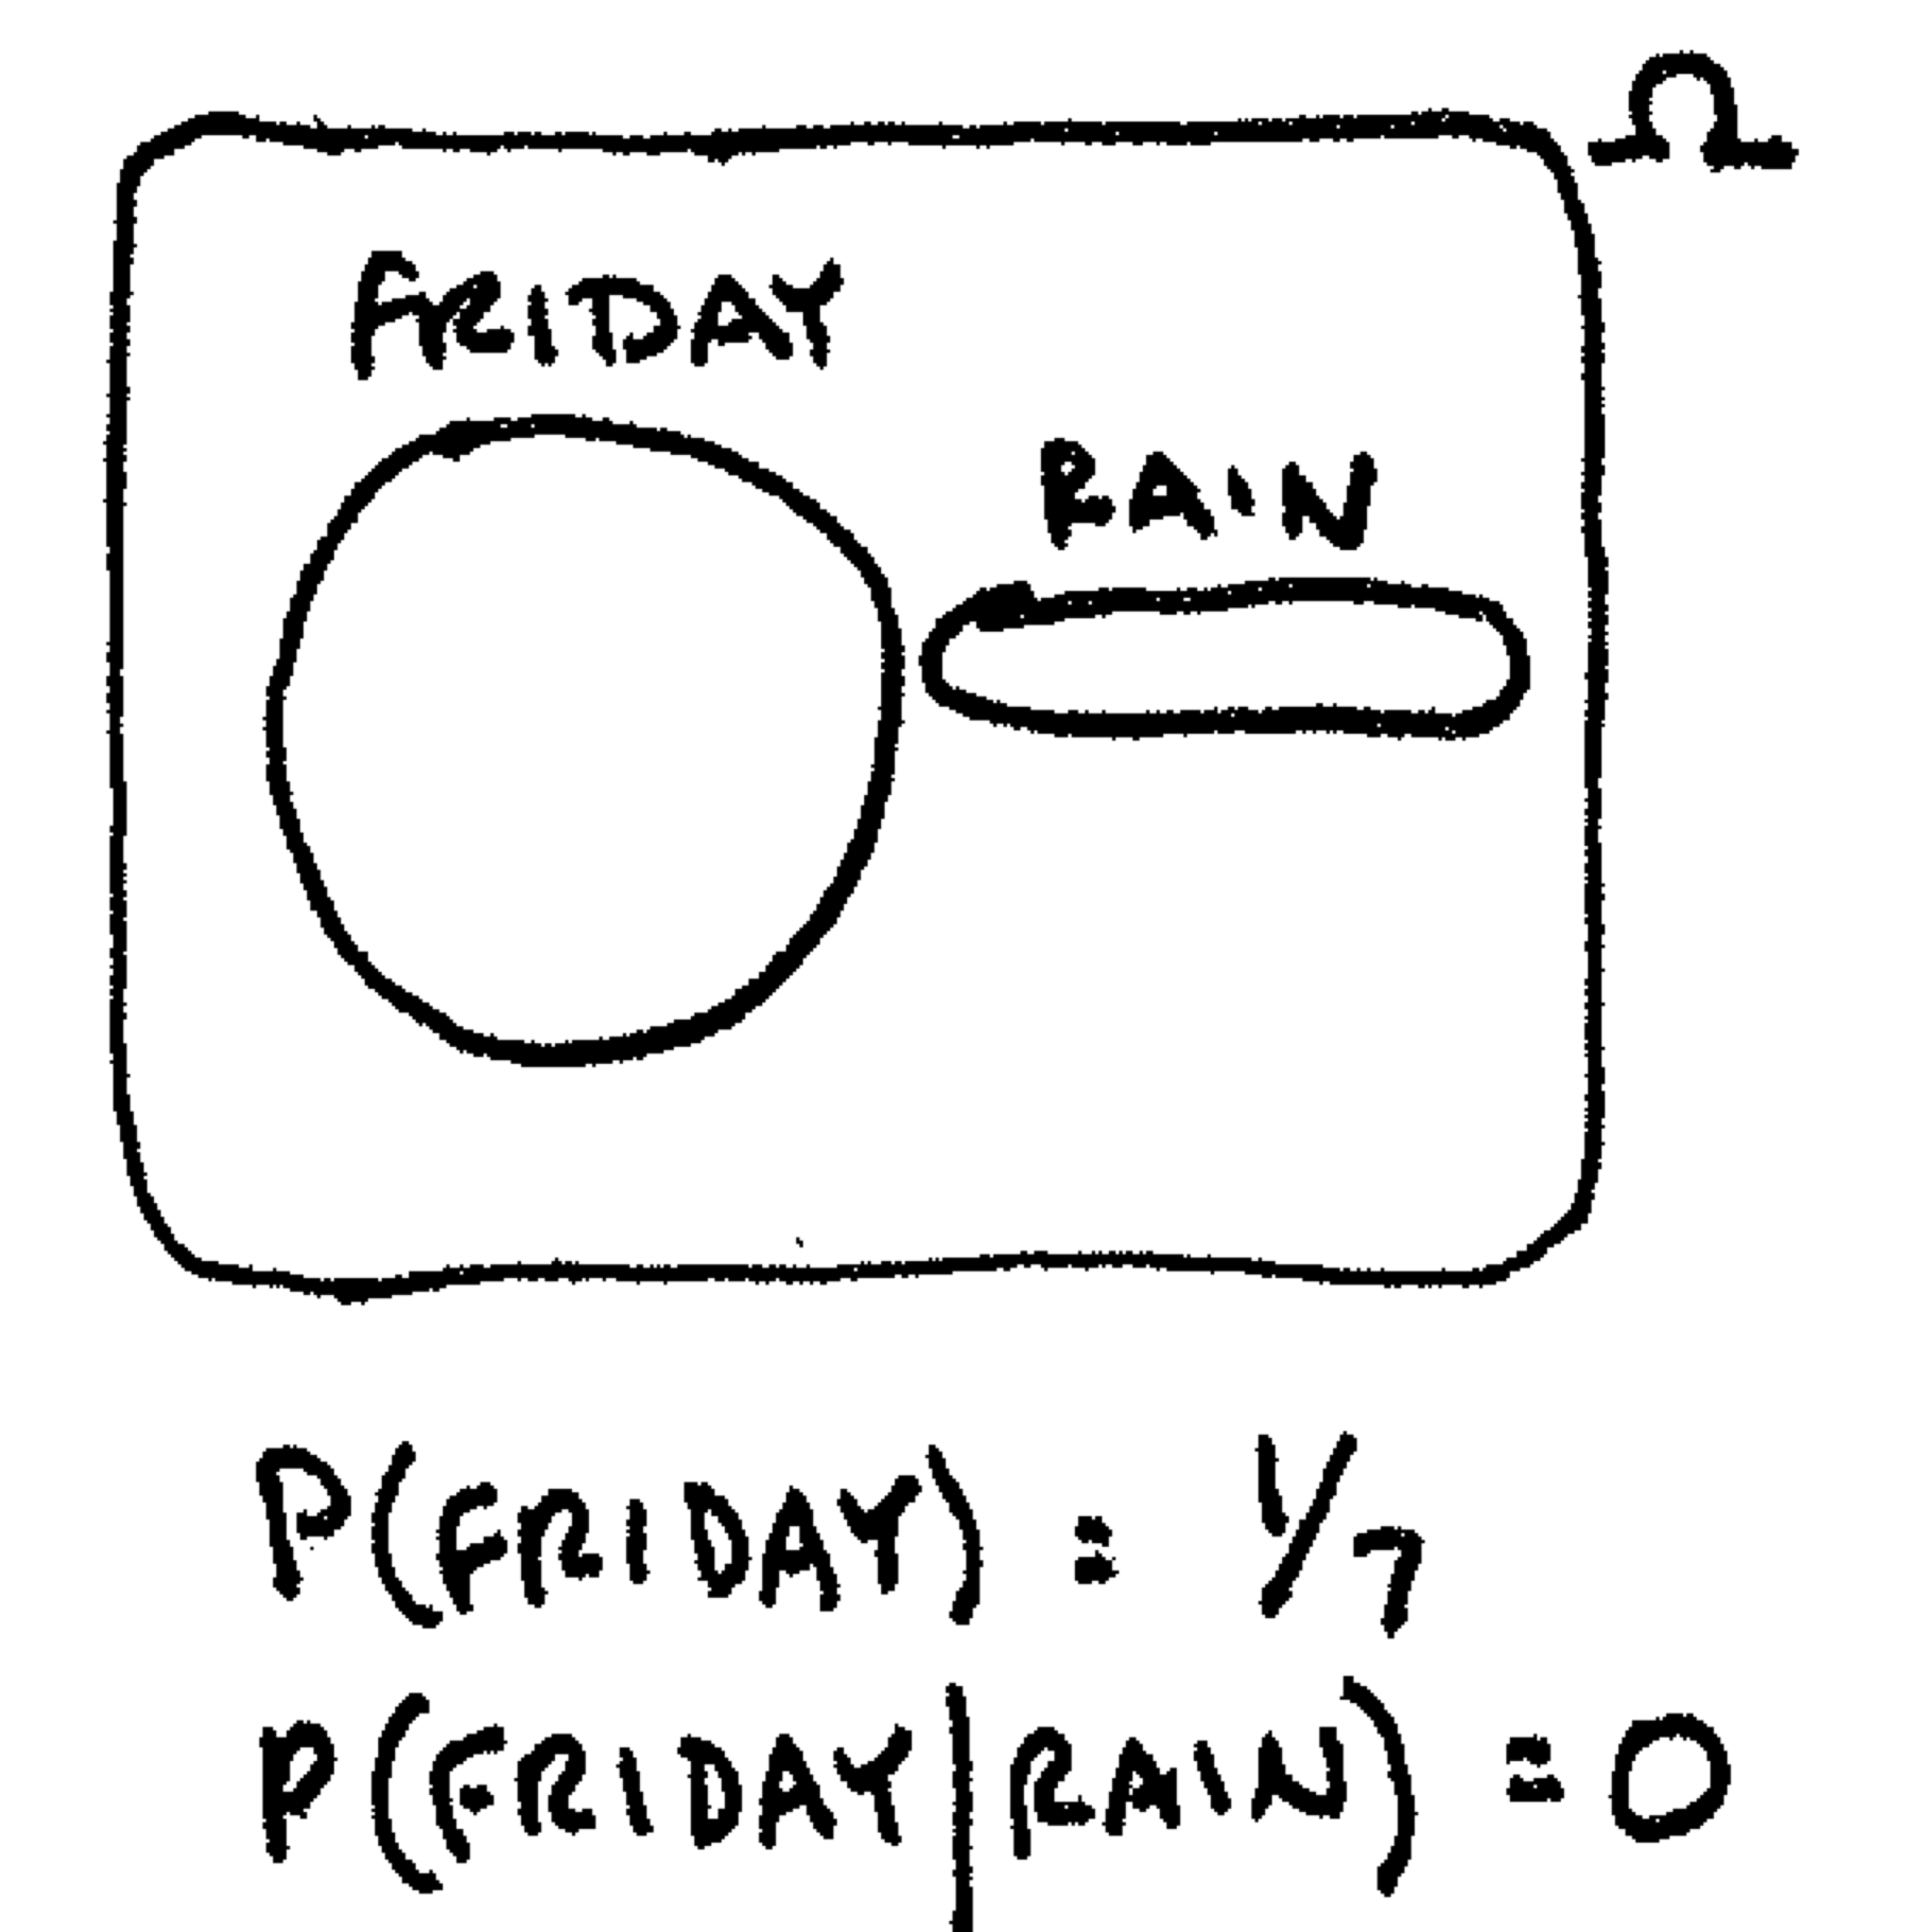 Ω
FRIDAY
RAIN
P(FRIDAY) = 1/7
P(FRIDAY|RAIN) = 0